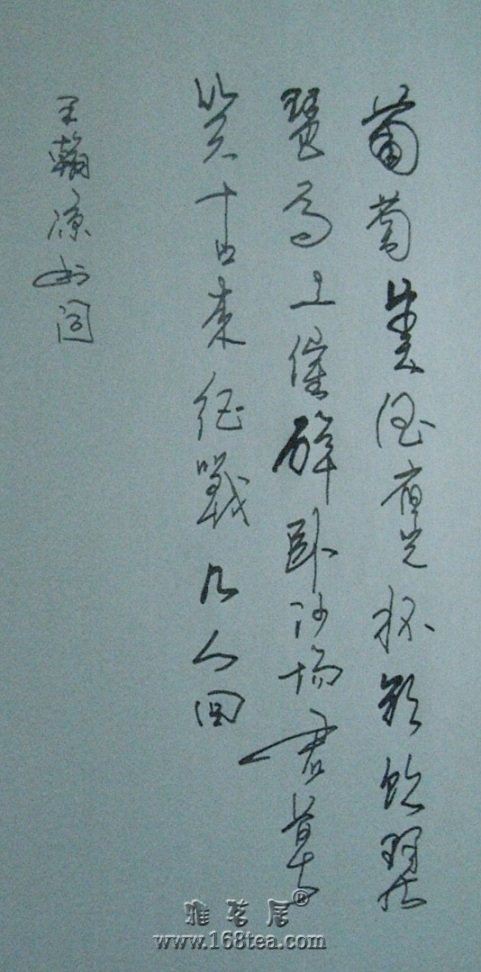 葡萄美酒夜光杯欲饮琵
琶马上催醉卧沙场君莫
笑古来征戰几人回
王翰凉州词
雅茗居®
www.168tea.com